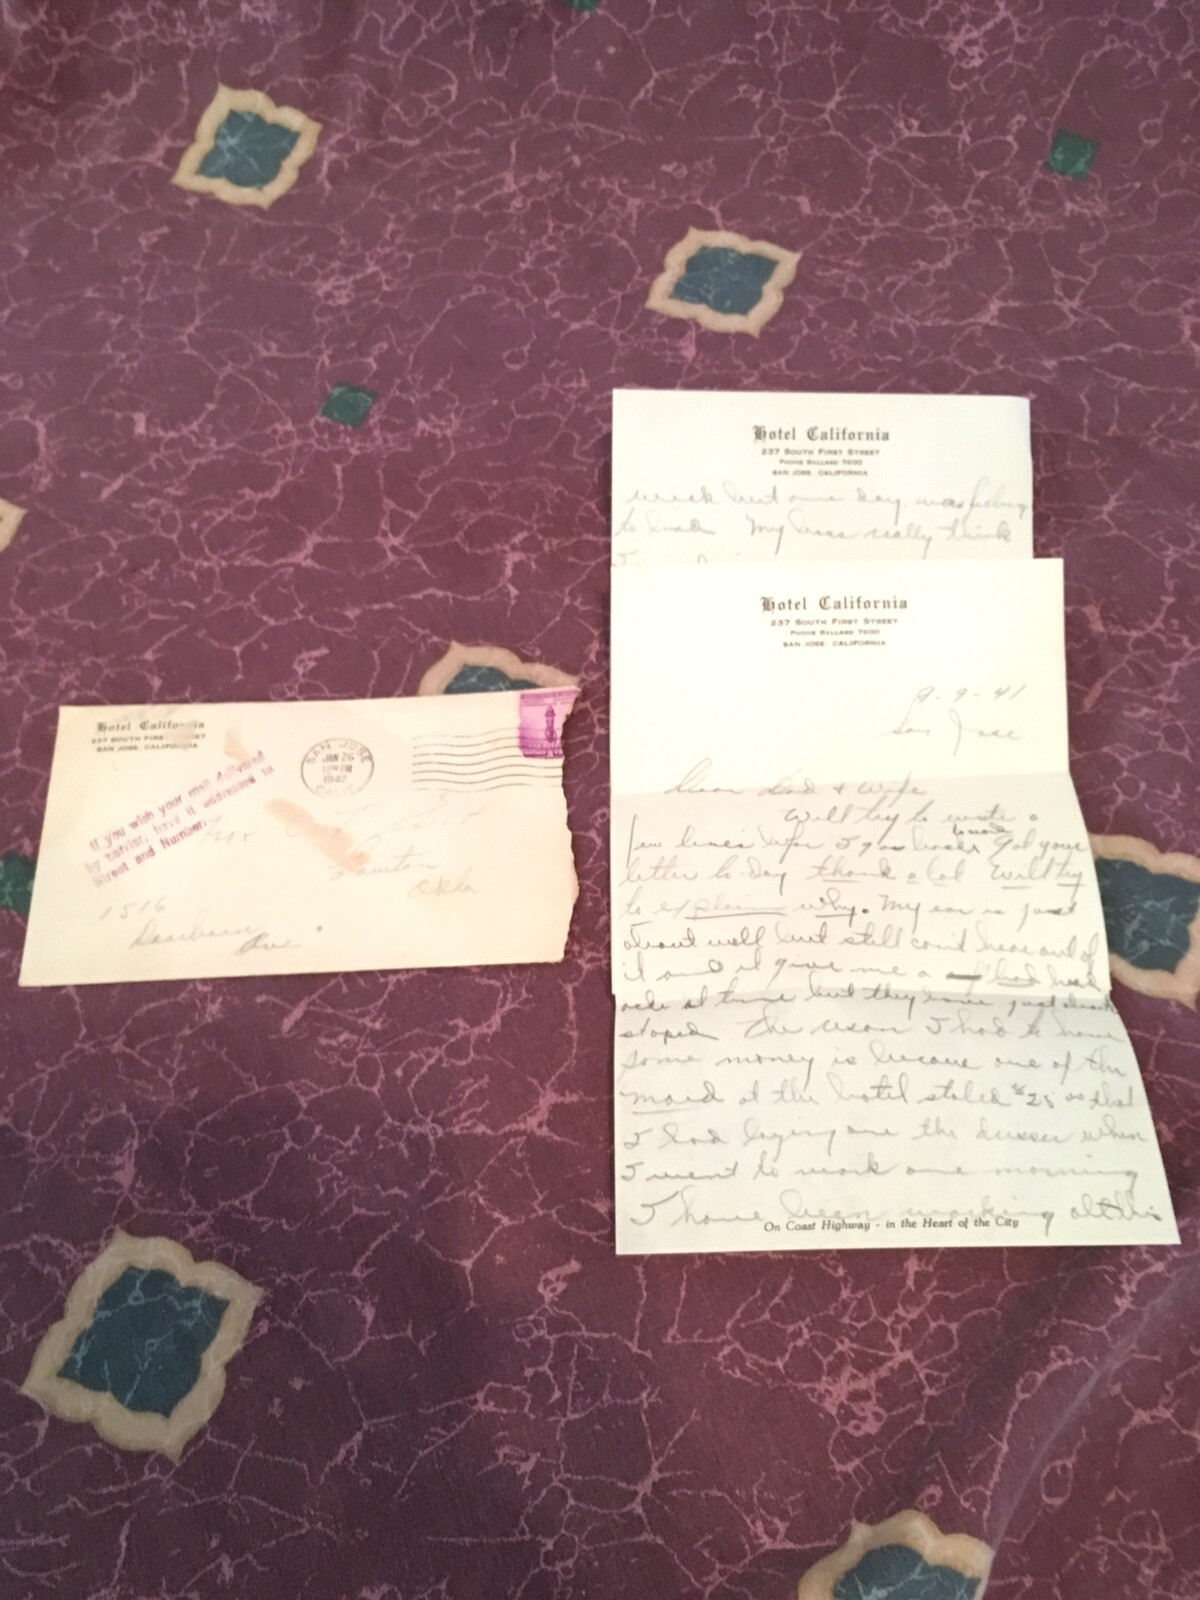 Hotel California
237 SOUTH FIRST STREET
PHONE BALLARD 7600
SAN JOSE, CALIFORNIA
week but one day. was feling
to bad My boss really think
Hotel California
237 SOUTH FIRST STREET
PHONE BALLARD 7600
SAN JOSE CALIFORNIA
9-9-41
San Jose
Dear Dad & Wife
Will try to write a
few lines befor I go
Got your
letter to-day thank a lot Will try
to explain why. My ear is just
about well but still can't hear out of
it and it give me a bad head
ache at time but they have just about
stoped The reson I had to have
some money is because one of the
maid at the hotel stoled $25 as that
I had laying one the dresser when
I went to work one morning
I have been working all this
On Coast Highway - in the Heart of the City
Hotel California
237 SOUTH FIRST STREET
SAN JOSE, CALIFORNIA
SAN JOSE
JAN 26
12 PM
1942
CALIF.
If you wish your mail delivered
by carrier, have it addressed to
Street and Number.
Mr
Lawton
Okla
1516
Dearborn
Ave